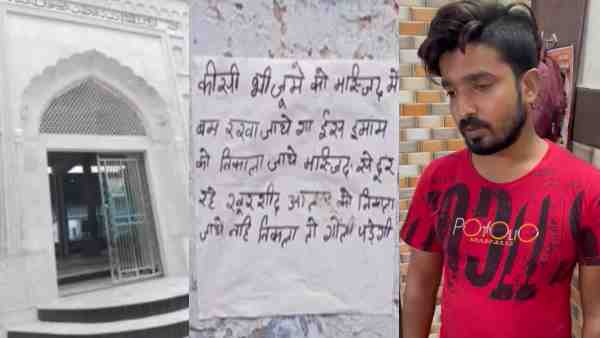 कीसी भी जूमे को मस्जिद मे
बम रखवा जाये गा ईस इमाम
को निकाला जाये मस्जिद से दूर
रहे खूरशीद आलम को निकाला
जाये नहि निकाला तो गोली पड़ेगी
PO TFOLIO